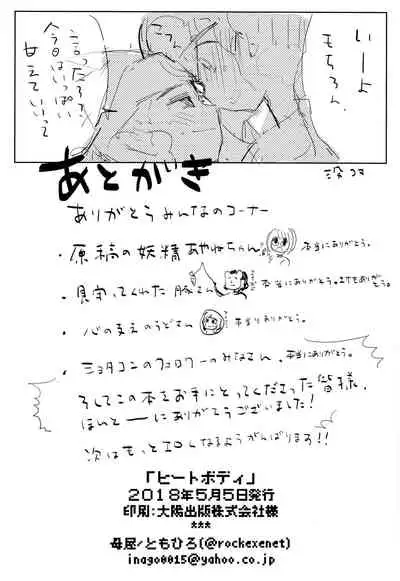 いーよ
もちろん
こつん
言ったろ?
今日はいっぱい
甘えていいって
没コマ
あとがき
ありがとうみんなのコーナー
・原稿の妖精あやねちゃん
本当にありがとう。
・見守ってくれた豚さん
本当にありがとう。
・心の支えのうどさん
本当にありがとう。
・ショタコンのフォロワーのみなさん、本当にありがとう。
そしてこの本をお手にとってくださった皆様、
ほんとーーにありがとうございました!
次はもっとエロくなるようがんばります!!
「ヒートボディ」
2018年5月5日発行
印刷:大陽出版株式会社様
***
母屋/ともひろ(@rockexenet)
inago0015@yahoo.co.jp